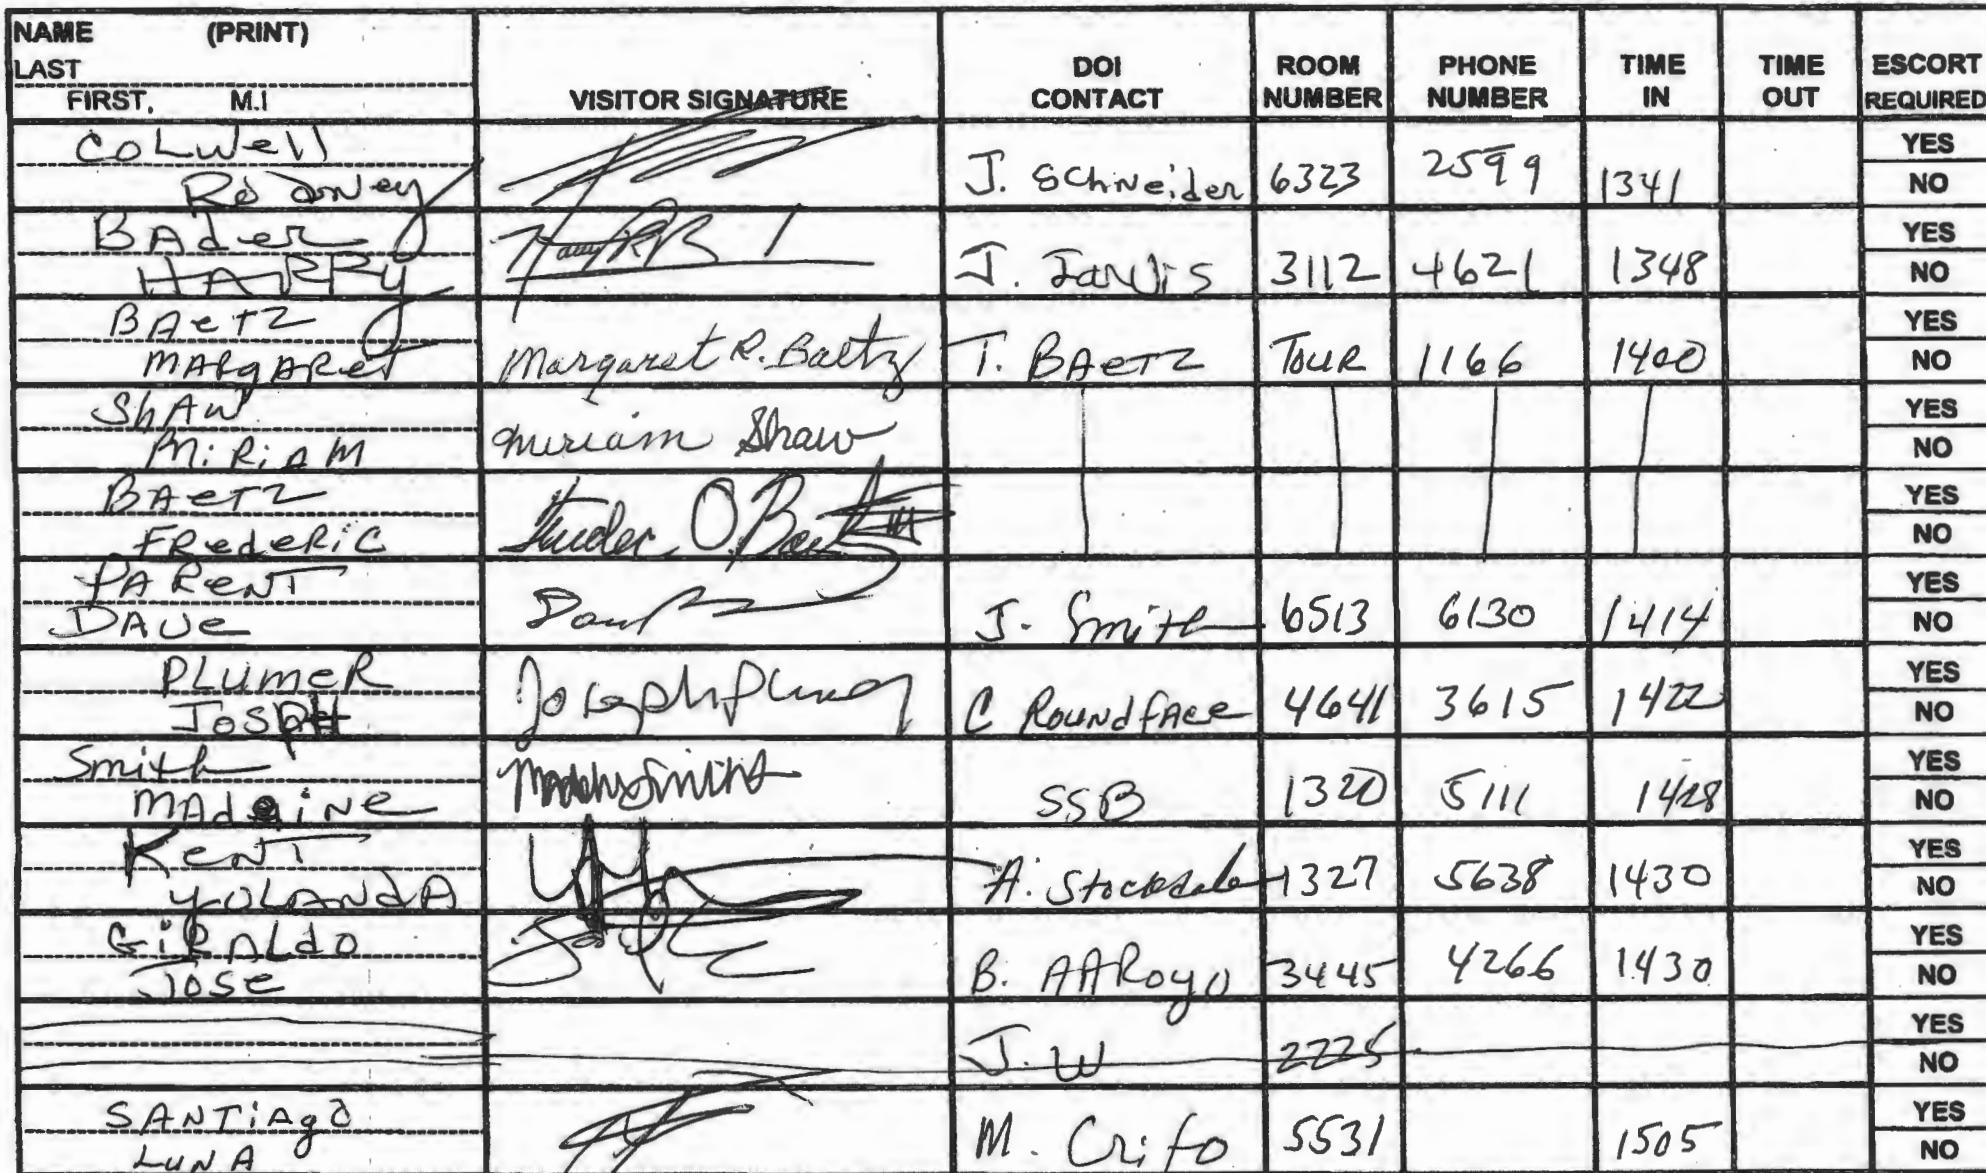 NAME (PRINT)
LAST
FIRST, M.I
VISITOR SIGNATURE
DOI CONTACT
ROOM NUMBER
PHONE NUMBER
TIME IN
TIME OUT
ESCORT REQUIRED
COLWell
RODNey
J. SCHNeider 6323 2599 1341
YES
NO
BAder
HARRy
J. Jarvis 3112 4621 1348
YES
NO
BAeTZ
MARgAReT
Margaret R. Baetz
T. BAeTZ TOUR 1166 1400
YES
NO
ShAW
MiRiAM
Miriam Shaw
YES
NO
BAeTZ
FRedeRiC
YES
NO
PAReNT
DAVe
J. Smith 6513 6130 1414
YES
NO
PLUMeR
JOSPH
Joseph Plumer
C ROUNdfAce 4641 3615 1422
YES
NO
Smith
MAdeiNe
SSB 1320 5111 1428
YES
NO
KeNT
YOLANdA
A. Stocksdale 1327 5638 1430
YES
NO
GiRALdO
JOSe
B. AARoyo 3445 4266 1430
YES
NO
J. W 2225
YES
NO
SANTiAgO
LUNA
M. Crifo 5531 1505
YES
NO